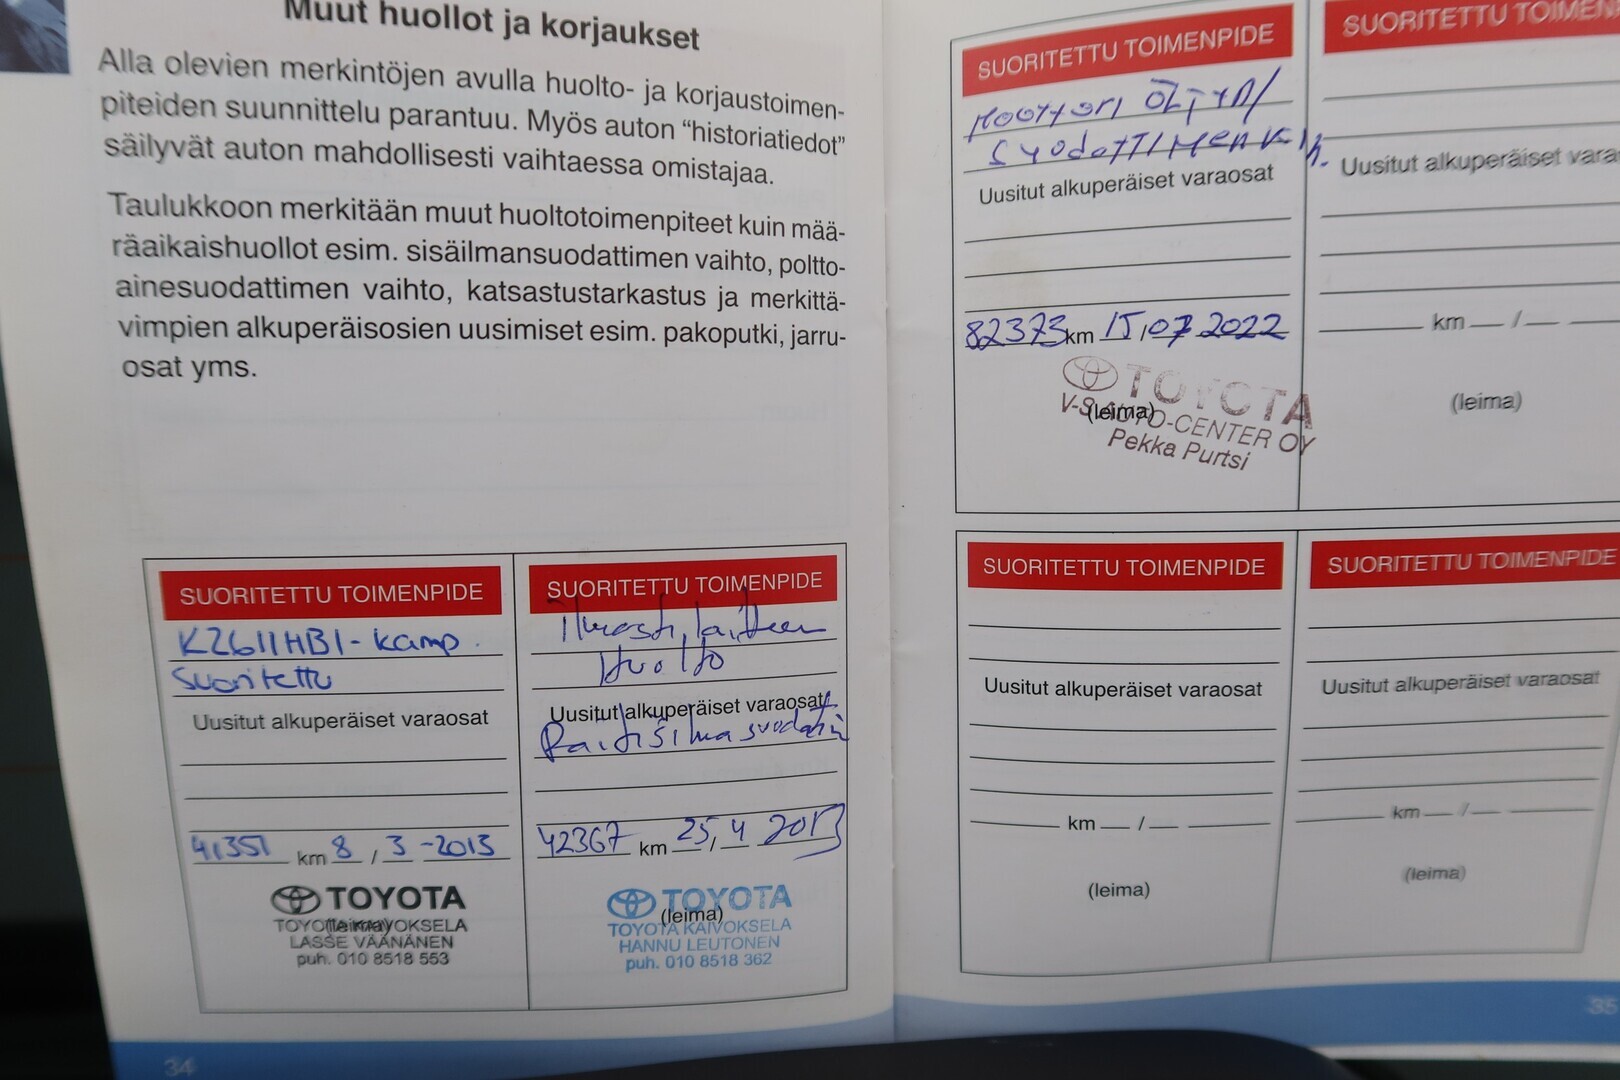 Muut huollot ja korjaukset
Alla olevien merkintöjen avulla huolto- ja korjaustoimen-
piteiden suunnittelu parantuu. Myös auton "historiatiedot"
säilyvät auton mahdollisesti vaihtaessa omistajaa.
Taulukkoon merkitään muut huoltotoimenpiteet kuin mää-
räaikaishuollot esim. sisäilmansuodattimen vaihto, poltto-
ainesuodattimen vaihto, katsastustarkastus ja merkittä-
vimpien alkuperäisosien uusimiset esim. pakoputki, jarru-
osat yms.
SUORITETTU TOIMENPIDE
KZ611HB1-kamp.
suoritettu
Uusitut alkuperäiset varaosat
41351 km 8 / 3 -2013
TOYOTA
(leima)
TOYOTA KAIVOKSELA
LASSE VÄÄNÄNEN
puh. 010 8518 553
SUORITETTU TOIMENPIDE
ilmastilaitteen
Huolto
Uusitut alkuperäiset varaosat
Raitisilmasuodatin
42367 km 25 / 4 2013
TOYOTA
(leima)
TOYOTA KAIVOKSELA
HANNU LEUTONEN
puh. 010 8518 362
34
SUORITETTU TOIMENPIDE
MOOTTORI ÖLJYN/
SUODATTIMEN V
Uusitut alkuperäiset varaosat
82373 km 15 / 07 2022
TOYOTA
(leima)
V-S AUTO-CENTER OY
Pekka Purtsi
SUORITETTU TOIMEN
Uusitut alkuperäiset vara
km / 
(leima)
SUORITETTU TOIMENPIDE
Uusitut alkuperäiset varaosat
km / 
(leima)
SUORITETTU TOIMENPIDE
Uusitut alkuperäiset varaosat
km / 
(leima)
35